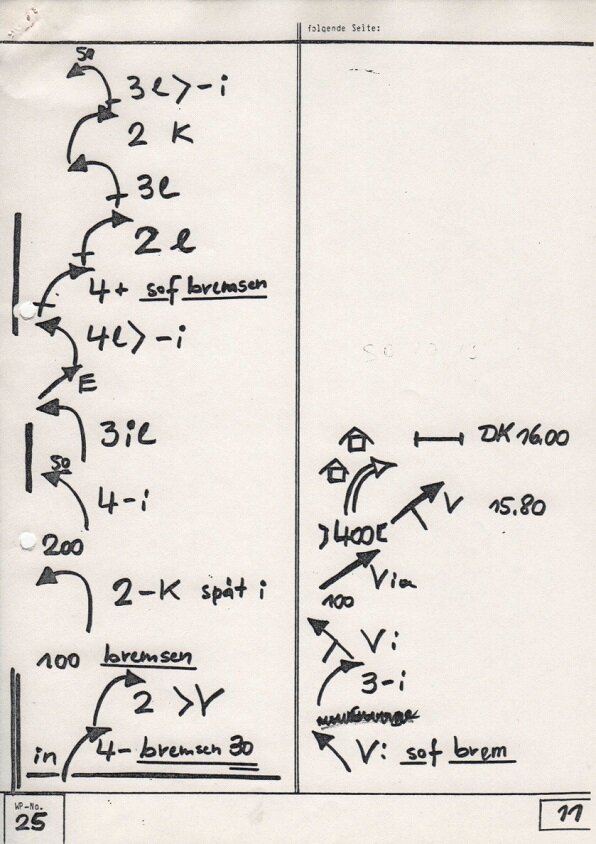 folgende Seite:
so
3l>-i
2 K
3l
2l
4+ sof bremsen
4l>-i
E
3il
so
4-i
200
2-K spät i
100 bremsen
2 >V
in 4- bremsen 30
WP-No.
25
DK 16.00
V 15.80
400
Via
100
Vi
3-i
Vi sof brem
11